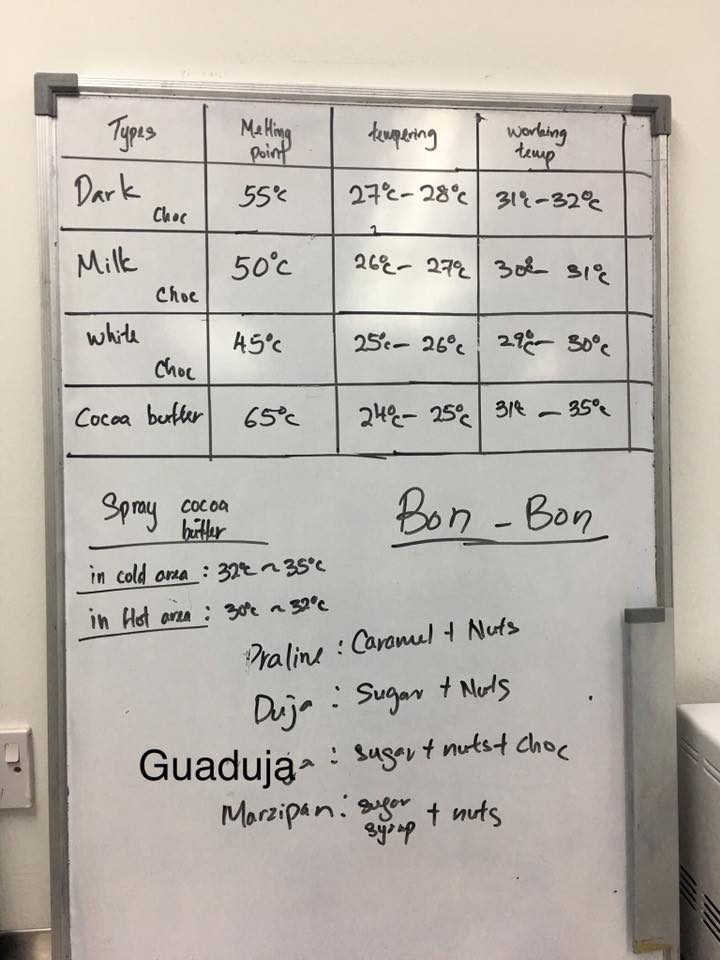 Types Melting point tempering working temp
Dark Choc 55°c 27°c - 28°c 31°c - 32°c
Milk Choc 50°c 26°c - 27°c 30°c - 31°c
White Choc 45°c 25°c - 26°c 29°c - 30°c
Cocoa butter 65°c 24°c - 25°c 31°c - 35°c
Spray cocoa butter
Bon - Bon
in cold area : 32°c ~ 35°c
in Hot area : 30°c ~ 32°c
Praline : Caramel + Nuts
Duja : Sugar + Nuts
Guaduja : sugar + nuts + choc
Marzipan : sugar syrup + nuts